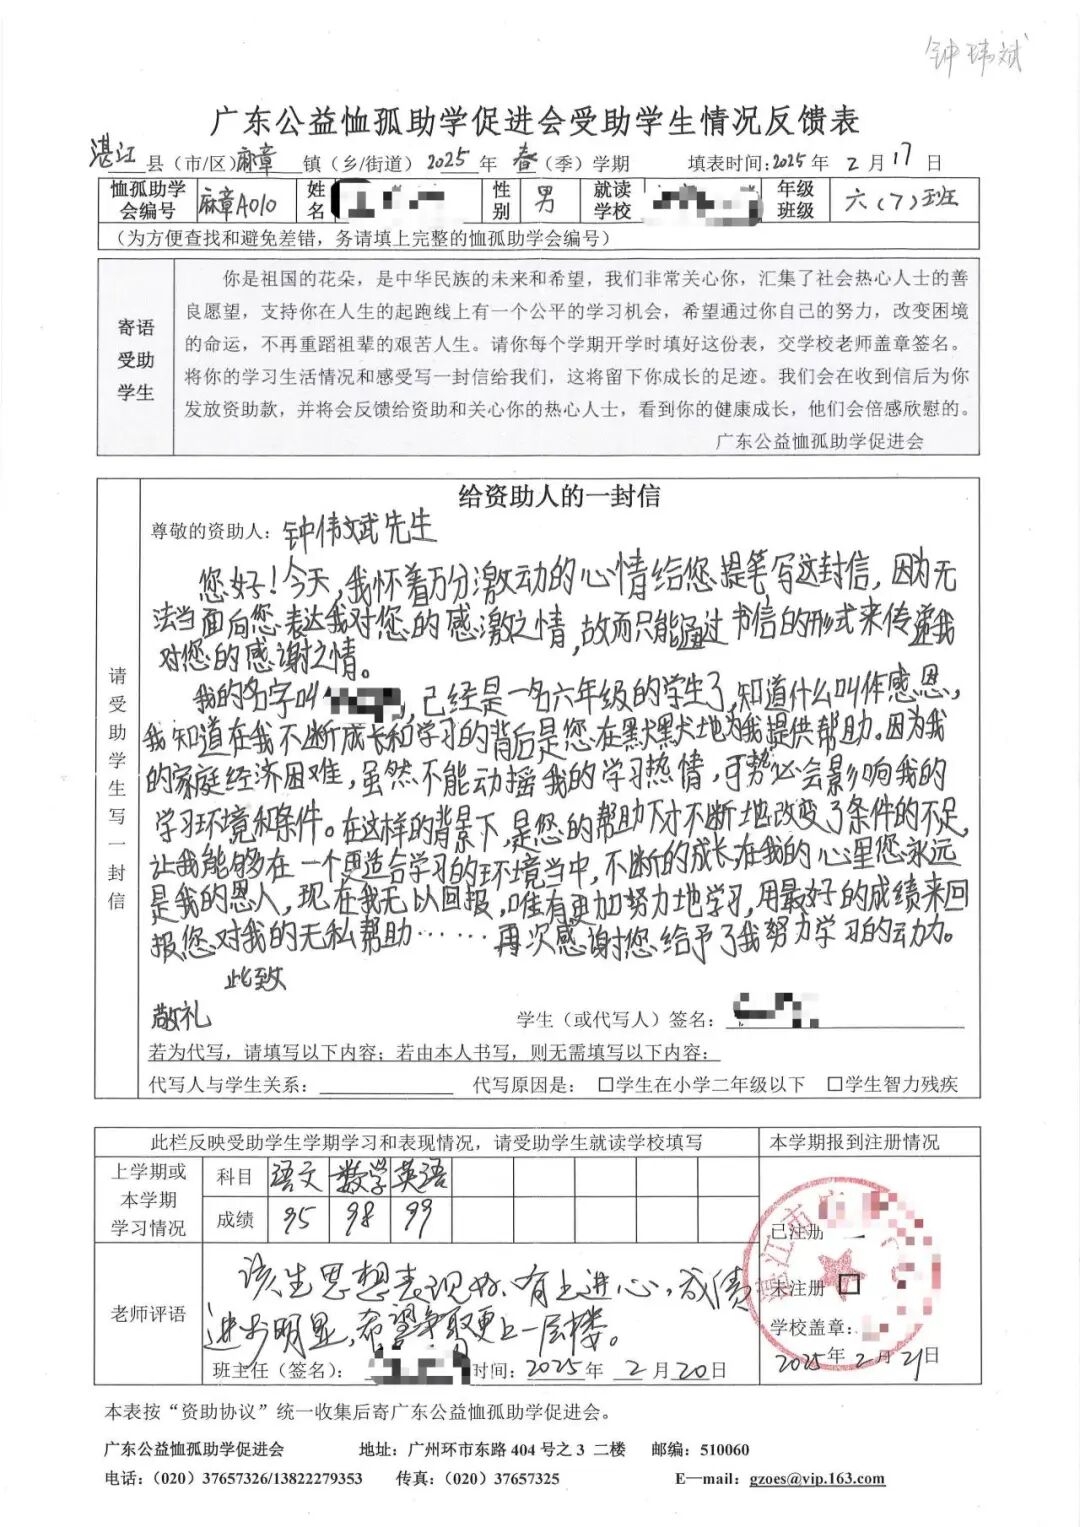 钟玮斌
广东公益恤孤助学促进会受助学生情况反馈表
湛江 县（市/区）麻章 镇（乡/街道）2025 年 春（季）学期 填表时间:2025 年 2 月 17 日
恤孤助学会编号 麻章A010 姓名 性别 男 就读学校 年级班级 六（7）班
（为方便查找和避免差错，务请填上完整的恤孤助学会编号）
寄语受助学生
你是祖国的花朵，是中华民族的未来和希望，我们非常关心你，汇集了社会热心人士的善
良愿望，支持你在人生的起跑线上有一个公平的学习机会，希望通过你自己的努力，改变困境
的命运，不再重蹈祖辈的艰苦人生。请你每个学期开学时填好这份表，交学校老师盖章签名。
将你的学习生活情况和感受写一封信给我们，这将留下你成长的足迹。我们会在收到信后为你
发放资助款，并将会反馈给资助和关心你的热心人士，看到你的健康成长，他们会倍感欣慰的。
广东公益恤孤助学促进会
请受助学生写一封信
给资助人的一封信
尊敬的资助人：钟伟斌先生
您好！今天，我怀着万分激动的心情给您提笔写这封信，因为无
法当面向您表达我对您的感激之情，故而只能通过书信的形式来传递我
对您的感谢之情。
我的名字叫，已经是一名六年级的学生了，知道什么叫作感恩，
我知道在我不断成长和学习的背后是您在默默地为我提供帮助。因为我
的家庭经济困难，虽然不能动摇我的学习热情，可势必会影响我的
学习环境和条件。在这样的背景下，是您的帮助下才不断地改变了条件的不足，
让我能够在一个更适合学习的环境当中，不断的成长在我的心里您永远
是我的恩人，现在我无以回报，唯有更加努力地学习，用最好的成绩来回
报您对我的无私帮助……再次感谢您给予了我努力学习的动力。
此致
敬礼
学生（或代写人）签名：
若为代写，请填写以下内容；若由本人书写，则无需填写以下内容：
代写人与学生关系： 代写原因是： □学生在小学二年级以下 □学生智力残疾
此栏反映受助学生学期学习和表现情况，请受助学生就读学校填写 本学期报到注册情况
上学期或本学期学习情况
科目 语文 数学 英语
成绩 95 98 99
老师评语
该生思想表现好，有上进心，成绩
进步明显，希望争取更上一层楼。
班主任（签名）： 时间：2025年 2 月 20 日
湛江市
已注册
未注册 □
学校盖章：
2025年 2 月 21日
本表按“资助协议”统一收集后寄广东公益恤孤助学促进会。
广东公益恤孤助学促进会 地址：广州环市东路 404 号之 3 二楼 邮编：510060
电话：（020）37657326/13822279353 传真：（020）37657325 E—mail：gzoes@vip.163.com